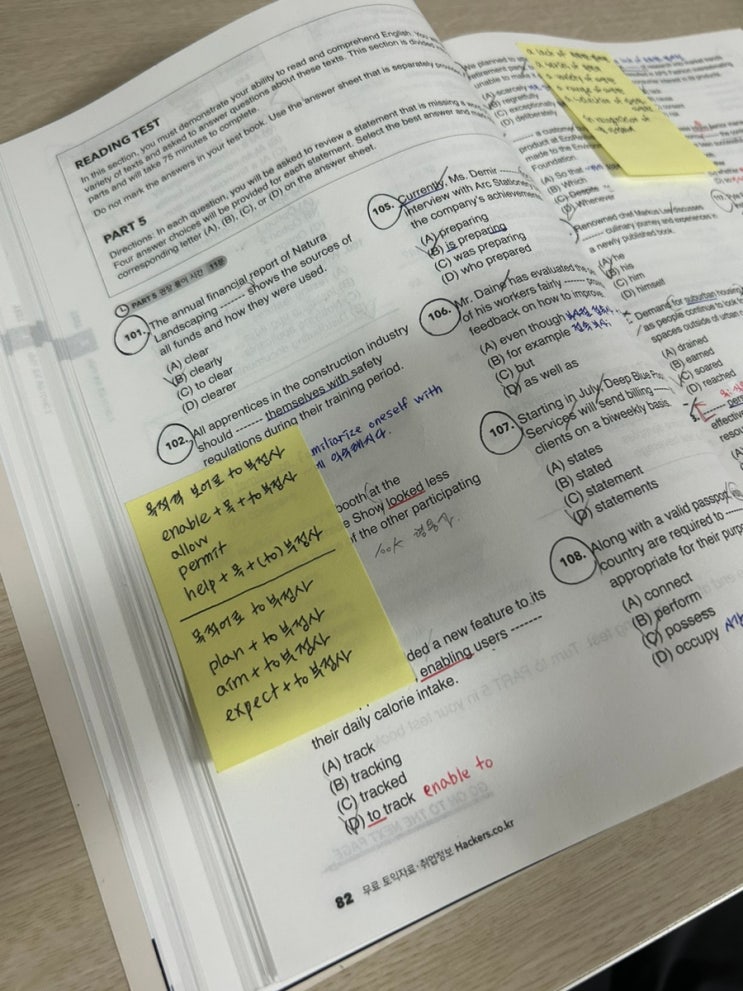 READING TEST
In this section, you must demonstrate your ability to read and comprehend English. You
variety of texts and asked to answer questions about these texts. This section is divided
parts and will take 75 minutes to complete.
Do not mark the answers in your test book. Use the answer sheet that is separately
PART 5
Directions: In each question, you will be asked to review a statement that is missing a
Four answer choices will be provided for each statement. Select the best answer and
corresponding letter (A), (B), (C), or (D) on the answer sheet.
PART 5 권장 풀이 시간 11분
101. The annual financial report of Natura
Landscaping ------- shows the sources of
all funds and how they were used.
(A) clear
(B) clearly
(C) to clear
(D) clearer
102. All apprentices in the construction industry
should ------- themselves with safety
regulations during their training period.
miliarize oneself with
목적격 보어로 to 부정사
enable + 목 + to부정사
allow
permit
help + 목 + (to)부정사
목적어로 to 부정사
plan + to 부정사
aim + to 부정사
expect + to 부정사
booth at the
e Show looked less
f the other participating
look 형용사.
ded a new feature to its
, enabling users -------
their daily calorie intake.
(A) track
(B) tracking
(C) tracked
(D) to track enable to
82 무료 토익자료·취업정보 Hackers.co.kr
105. Currently, Ms. Demir
interview with Arc Stationer
the company's achievemen
(A) preparing
(B) is preparing
(C) was preparing
(D) who prepared
106. Mr. Daing has evaluated the
of his workers fairly -------
feedback on how to improve
(A) even though
(B) for example
(C) but
(D) as well as
107. Starting in July, Deep Blue
Services will send billing -------
clients on a biweekly basis.
(A) states
(B) stated
(C) statement
(D) statements
108. Along with a valid passpor
country are required to -------
appropriate for their purp
(A) connect
(B) perform
(C) possess
(D) occupy
(A) scarcely
(B) regrettably
(C) exceptionally
(D) deliberately
a customer
product at
made to the
Foundation.
(A) So that
(B) Which
(C) Despite
(D) Whenever
Renowned chef Markus Levi discusses
------- culinary journey and experiences in
a newly published book.
(A) he
(B) his
(C) him
(D) himself
Demand for suburban housing
as people continue to look
spaces outside of urban
(A) drained
(B) earned
(C) soared
(D) reached